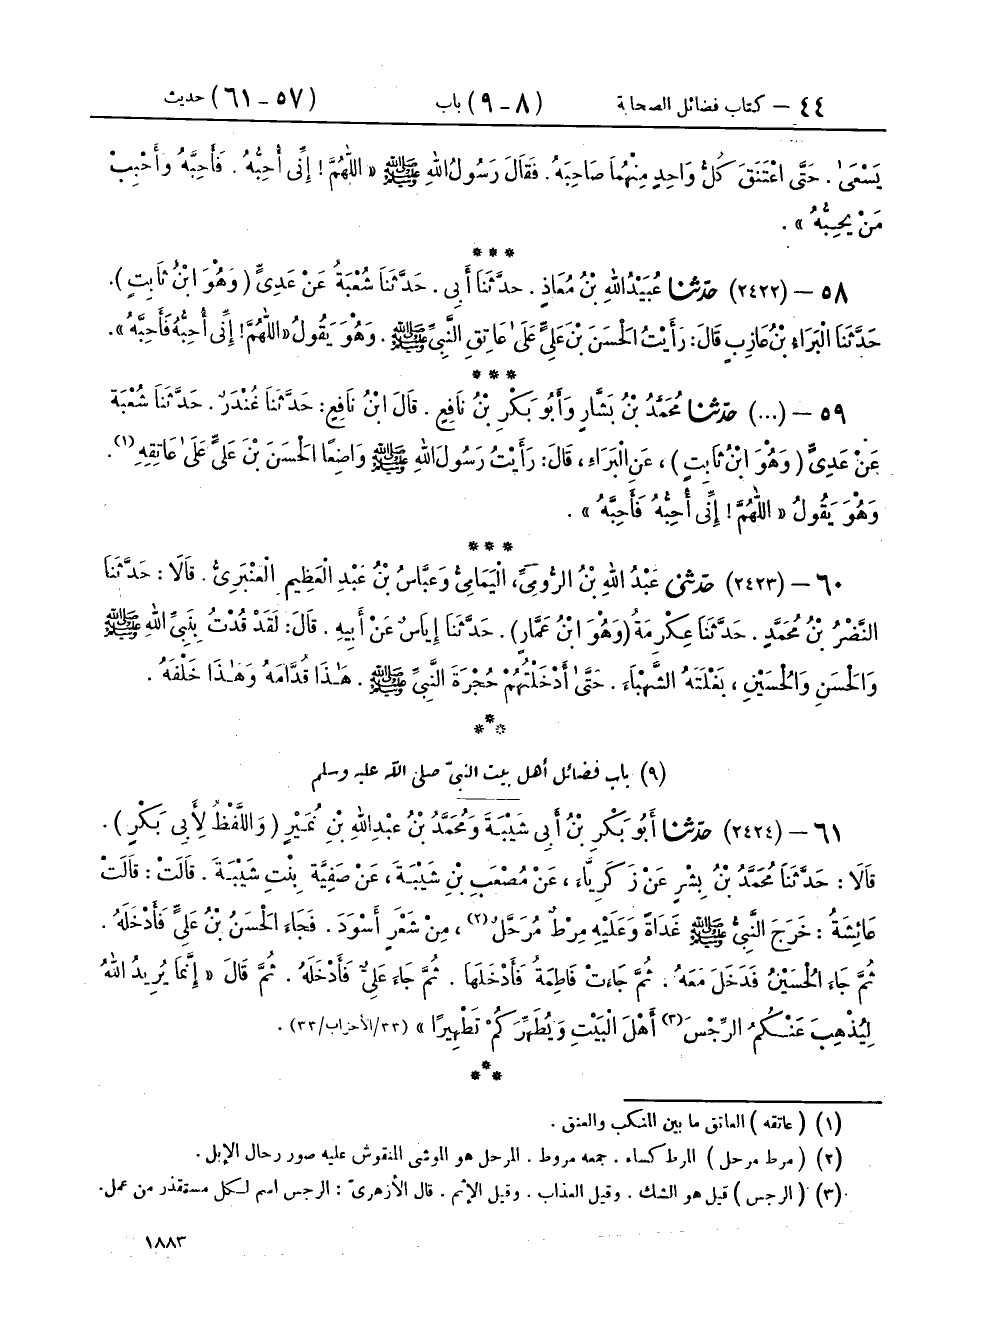 ٤٤ – كتاب فضائل الصحابة (٨ – ٩) باب (٥٧ – ٦١) حديث
يَسْعَىٰ . حَتَّى اعْتَنَقَ كُلُّ وَاحِدٍ مِنْهُمَا صَاحِبَهُ . فَقَالَ رَسُولُ اللهِ ﷺ « اللَّهُمَّ ! إِنِّى أُحِبُّهُ . فَأَحِبَّهُ وَأَحْبِبْ
مَنْ يُحِبُّهُ » .
***
٥٨ – (٢٤٢٢) حدّثنا عُبَيْدُ اللهِ بْنُ مُعَاذٍ . حَدَّثَنَا أَبِى . حَدَّثَنَا شُعْبَةُ عَنْ عَدِىٍّ ( وَهُوَ ابْنُ ثَابِتٍ ) .
حَدَّثَنَا الْبَرَاءُ بْنُ عَازِبٍ قَالَ : رَأَيْتُ الْحَسَنَ بْنَ عَلِىٍّ عَلَىٰ عَاتِقِ النَّبِىِّ ﷺ . وَهُوَ يَقُولُ « اللَّهُمَّ ! إِنِّى أُحِبُّهُ فَأَحِبَّهُ » .
***
٥٩ – (...) حدّثنا مُحَمَّدُ بْنُ بَشَّارٍ وَأَبُو بَكْرِ بْنُ نَافِعٍ . قَالَ ابْنُ نَافِعٍ : حَدَّثَنَا غُنْدَرٌ . حَدَّثَنَا شُعْبَةُ
عَنْ عَدِىٍّ ( وَهُوَ ابْنُ ثَابِتٍ ) ، عَنِ الْبَرَاءِ ، قَالَ : رَأَيْتُ رَسُولَ اللهِ ﷺ وَاضِعًا الْحَسَنَ بْنَ عَلِىٍّ عَلَىٰ عَاتِقِهِ (١) .
وَهُوَ يَقُولُ « اللَّهُمَّ ! إِنِّى أُحِبُّهُ فَأَحِبَّهُ » .
***
٦٠ – (٢٤٢٣) حدّثنى عَبْدُ اللهِ بْنُ الرُّومِىِّ ، الْيَمَامِىُّ وَعَبَّاسُ بْنُ عَبْدِ الْعَظِيمِ الْعَنْبَرِىُّ . قَالَا : حَدَّثَنَا
النَّضْرُ بْنُ مُحَمَّدٍ . حَدَّثَنَا عِكْرِمَةُ (وَهُوَ ابْنُ عَمَّارٍ) . حَدَّثَنَا إِيَاسٌ عَنْ أَبِيهِ . قَالَ : لَقَدْ قُدْتُ بِنَبِىِّ اللهِ ﷺ
وَالْحَسَنِ وَالْحُسَيْنِ ، بَغْلَتَهُ الشَّهْبَاءَ . حَتَّىٰ أَدْخَلْتُهُمْ حُجْرَةَ النَّبِىِّ ﷺ . هَٰذَا قُدَّامَهُ وَهَٰذَا خَلْفَهُ .
***
(٩) باب فضائل أهل بيت النبىّ صلى الله عليه وسلم
٦١ – (٢٤٢٤) حدّثنا أَبُو بَكْرِ بْنُ أَبِى شَيْبَةَ وَمُحَمَّدُ بْنُ عَبْدِ اللهِ بْنِ نُمَيْرٍ ( وَاللَّفْظُ لِأَبِى بَكْرٍ ) .
قَالَا : حَدَّثَنَا مُحَمَّدُ بْنُ بِشْرٍ عَنْ زَكَرِيَّاءَ ، عَنْ مُصْعَبِ بْنِ شَيْبَةَ ، عَنْ صَفِيَّةَ بِنْتِ شَيْبَةَ . قَالَتْ : قَالَتْ
عَائِشَةُ : خَرَجَ النَّبِىُّ ﷺ غَدَاةً وَعَلَيْهِ مِرْطٌ مُرَحَّلٌ (٢) ، مِنْ شَعْرٍ أَسْوَدَ . فَجَاءَ الْحَسَنُ بْنُ عَلِىٍّ فَأَدْخَلَهُ .
ثُمَّ جَاءَ الْحُسَيْنُ فَدَخَلَ مَعَهُ . ثُمَّ جَاءَتْ فَاطِمَةُ فَأَدْخَلَهَا . ثُمَّ جَاءَ عَلِىٌّ فَأَدْخَلَهُ . ثُمَّ قَالَ « إِنَّمَا يُرِيدُ اللهُ
لِيُذْهِبَ عَنْكُمُ الرِّجْسَ (٣) أَهْلَ الْبَيْتِ وَيُطَهِّرَكُمْ تَطْهِيرًا » (٣٣/الأحزاب/٣٣) .
***
(١) ( عاتقه ) العاتق ما بين المنكب والعنق .
(٢) ( مرط مرحل ) المرط كساء . جمعه مروط . المرحل هو الموشى المنقوش عليه صور رحال الإبل .
(٣) ( الرجس ) قيل هو الشك . وقيل العذاب . وقيل الإثم . قال الأزهرىّ : الرجس اسم لكل مستقذر من عمل .
١٨٨٣